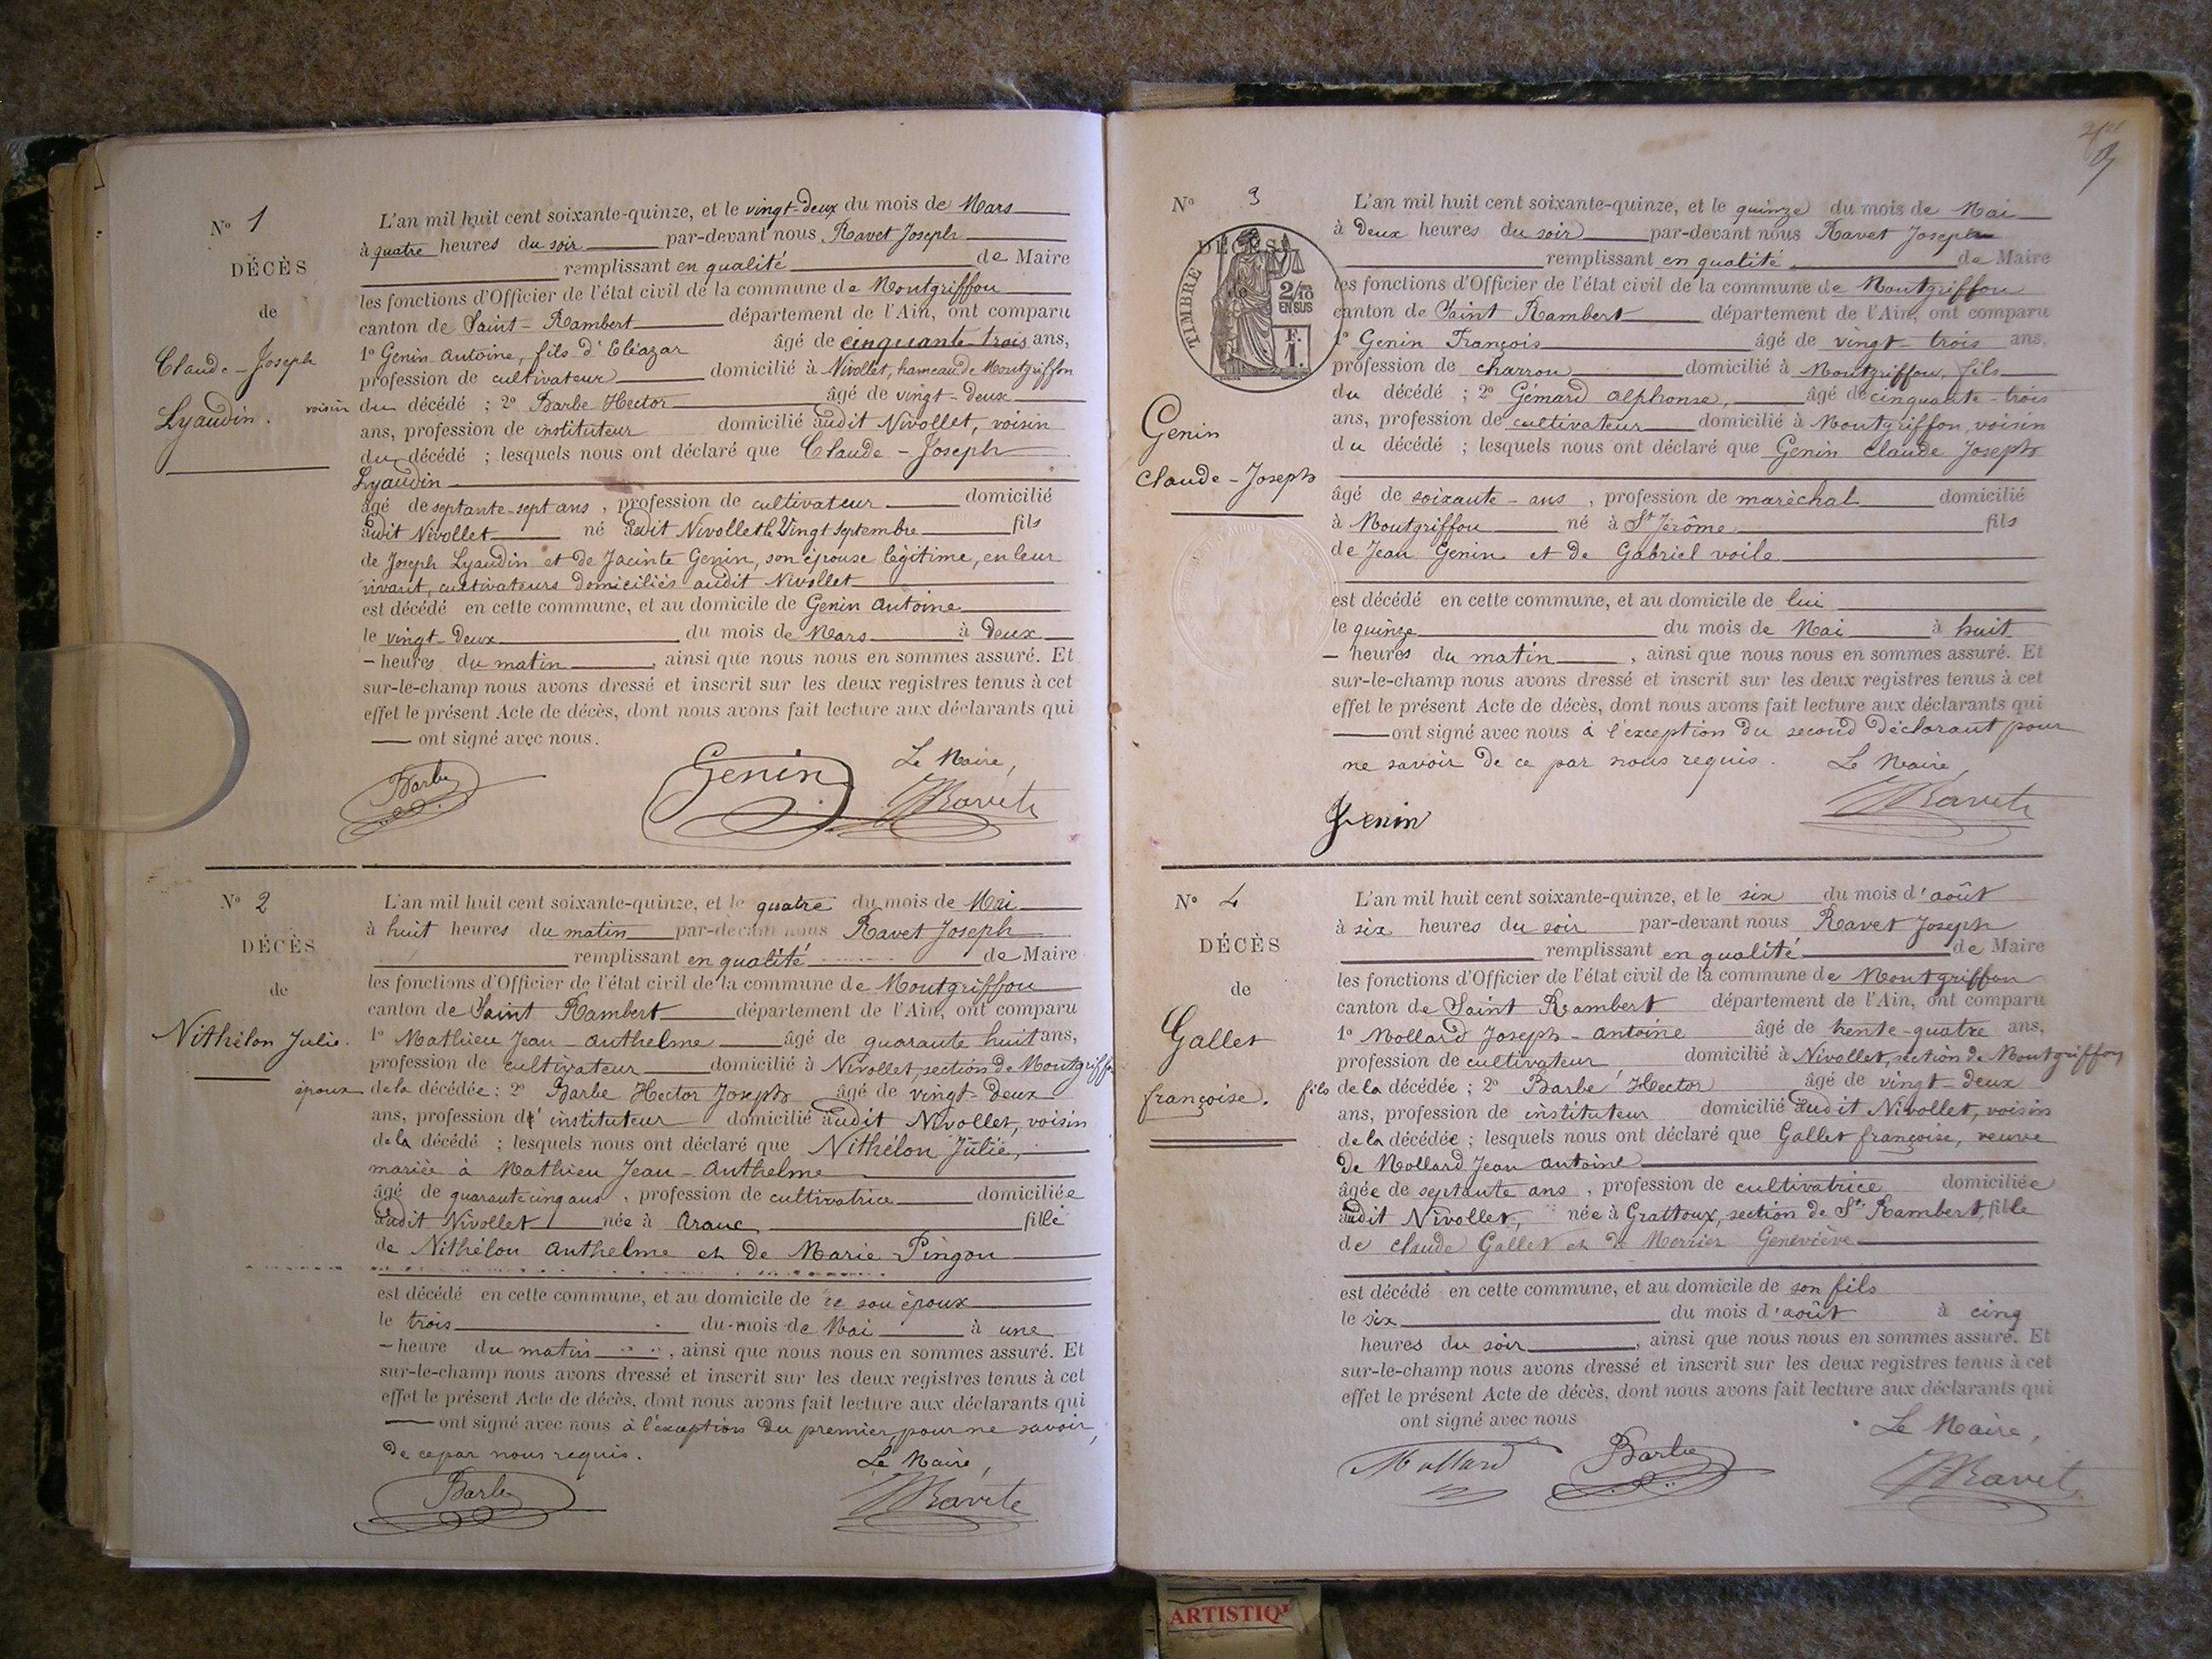 N° 1
DÉCÈS
de
Claude-Joseph
Lyaudin.
L'an mil huit cent soixante-quinze, et le vingt-deux du mois de Mars
à quatre heures du soir par-devant nous Ravet Joseph
remplissant en qualité de Maire
les fonctions d'Officier de l'état civil de la commune de Montgriffon
canton de Saint-Rambert département de l'Ain, ont comparu
1° Genin Antoine, fils d'Eléazar âgé de cinquante-trois ans,
profession de cultivateur domicilié à Nivollet, hameau de Montgriffon
voisin du décédé ; 2° Barbe Hector âgé de vingt-deux
ans, profession de instituteur domicilié audit Nivollet, voisin
du décédé ; lesquels nous ont déclaré que Claude-Joseph
Lyaudin
âgé de septante-sept ans, profession de cultivateur domicilié
audit Nivollet né audit Nivollet le Vingt septembre fils
de Joseph Lyaudin et de Jacinte Genin, son épouse légitime, en leur
vivant, cultivateurs domiciliés audit Nivollet
est décédé en cette commune, et au domicile de Genin Antoine
le vingt-deux du mois de Mars à deux
heures du matin, ainsi que nous nous en sommes assuré. Et
sur-le-champ nous avons dressé et inscrit sur les deux registres tenus à cet
effet le présent Acte de décès, dont nous avons fait lecture aux déclarants qui
ont signé avec nous.
Le Maire,
Barbe Genin JRavet
N° 2
DÉCÈS
de
Nithélon Julie.
L'an mil huit cent soixante-quinze, et le quatre du mois de Mai
à huit heures du matin par-devant nous Ravet Joseph
remplissant en qualité de Maire
les fonctions d'Officier de l'état civil de la commune de Montgriffon
canton de Saint Rambert département de l'Ain, ont comparu
1° Mathieu Jean-Anthelme âgé de quarante huit ans,
profession de cultivateur domicilié à Nivollet, section de Montgriffon
époux de la décédée : 2° Barbe Hector Joseph âgé de vingt-deux
ans, profession d'instituteur domicilié audit Nivollet, voisin
de la décédé ; lesquels nous ont déclaré que Nithélon Julie,
mariée à Mathieu Jean-Anthelme
âgé de quarante cinq ans, profession de cultivatrice domiciliée
audit Nivollet née à Aranc fille
de Nithélon Anthelme et de Marie Pingon
est décédé en cette commune, et au domicile de son époux
le trois du mois de Mai à une
heure du matin, ainsi que nous nous en sommes assuré. Et
sur-le-champ nous avons dressé et inscrit sur les deux registres tenus à cet
effet le présent Acte de décès, dont nous avons fait lecture aux déclarants qui
ont signé avec nous à l'exception du premier, pour ne savoir,
de ce par nous requis.
Le Maire,
Barbe JRavet
N° 3
DÉCÈS
TIMBRE
2/10
EN SUS
F.
1.
Genin
Claude-Joseph
L'an mil huit cent soixante-quinze, et le quinze du mois de Mai
à deux heures du soir par-devant nous Ravet Joseph
remplissant en qualité de Maire
les fonctions d'Officier de l'état civil de la commune de Montgriffon
canton de Saint Rambert département de l'Ain, ont comparu
1° Genin François âgé de vingt-trois ans,
profession de charron domicilié à Montgriffon, fils
du décédé ; 2° Gémard Alphonse, âgé de cinquante-trois
ans, profession de cultivateur domicilié à Montgriffon, voisin
du décédé ; lesquels nous ont déclaré que Genin Claude Joseph
âgé de soixante-ans, profession de maréchal domicilié
à Montgriffon né à St Jérôme fils
de Jean Genin et de Gabriel voile
est décédé en cette commune, et au domicile de lui
le quinze du mois de Mai à huit
heures du matin, ainsi que nous nous en sommes assuré. Et
sur-le-champ nous avons dressé et inscrit sur les deux registres tenus à cet
effet le présent Acte de décès, dont nous avons fait lecture aux déclarants qui
ont signé avec nous à l'exception du second déclarant pour
ne savoir de ce par nous requis. Le Maire,
Genin JRavet
N° 4
DÉCÈS
de
Gallet
françoise.
L'an mil huit cent soixante-quinze, et le six du mois d'août
à six heures du soir par-devant nous Ravet Joseph
remplissant en qualité de Maire
les fonctions d'Officier de l'état civil de la commune de Montgriffon
canton de Saint Rambert département de l'Ain, ont comparu
1° Mollard Joseph-Antoine âgé de trente-quatre ans,
profession de cultivateur domicilié à Nivollet, section de Montgriffon
fils de la décédée ; 2° Barbe Hector âgé de vingt-deux
ans, profession de instituteur domicilié audit Nivollet, voisin
de la décédée ; lesquels nous ont déclaré que Gallet françoise, veuve
de Mollard Jean Antoine
âgée de septante ans, profession de cultivatrice domiciliée
audit Nivollet, née à Grattoux, section de St Rambert, fille
de Claude Gallet et de Geneviève
est décédé en cette commune, et au domicile de son fils
le six du mois d'août à cinq
heures du soir, ainsi que nous nous en sommes assuré. Et
sur-le-champ nous avons dressé et inscrit sur les deux registres tenus à cet
effet le présent Acte de décès, dont nous avons fait lecture aux déclarants qui
ont signé avec nous
Le Maire,
Mollard Barbe JRavet
ARTISTIQ